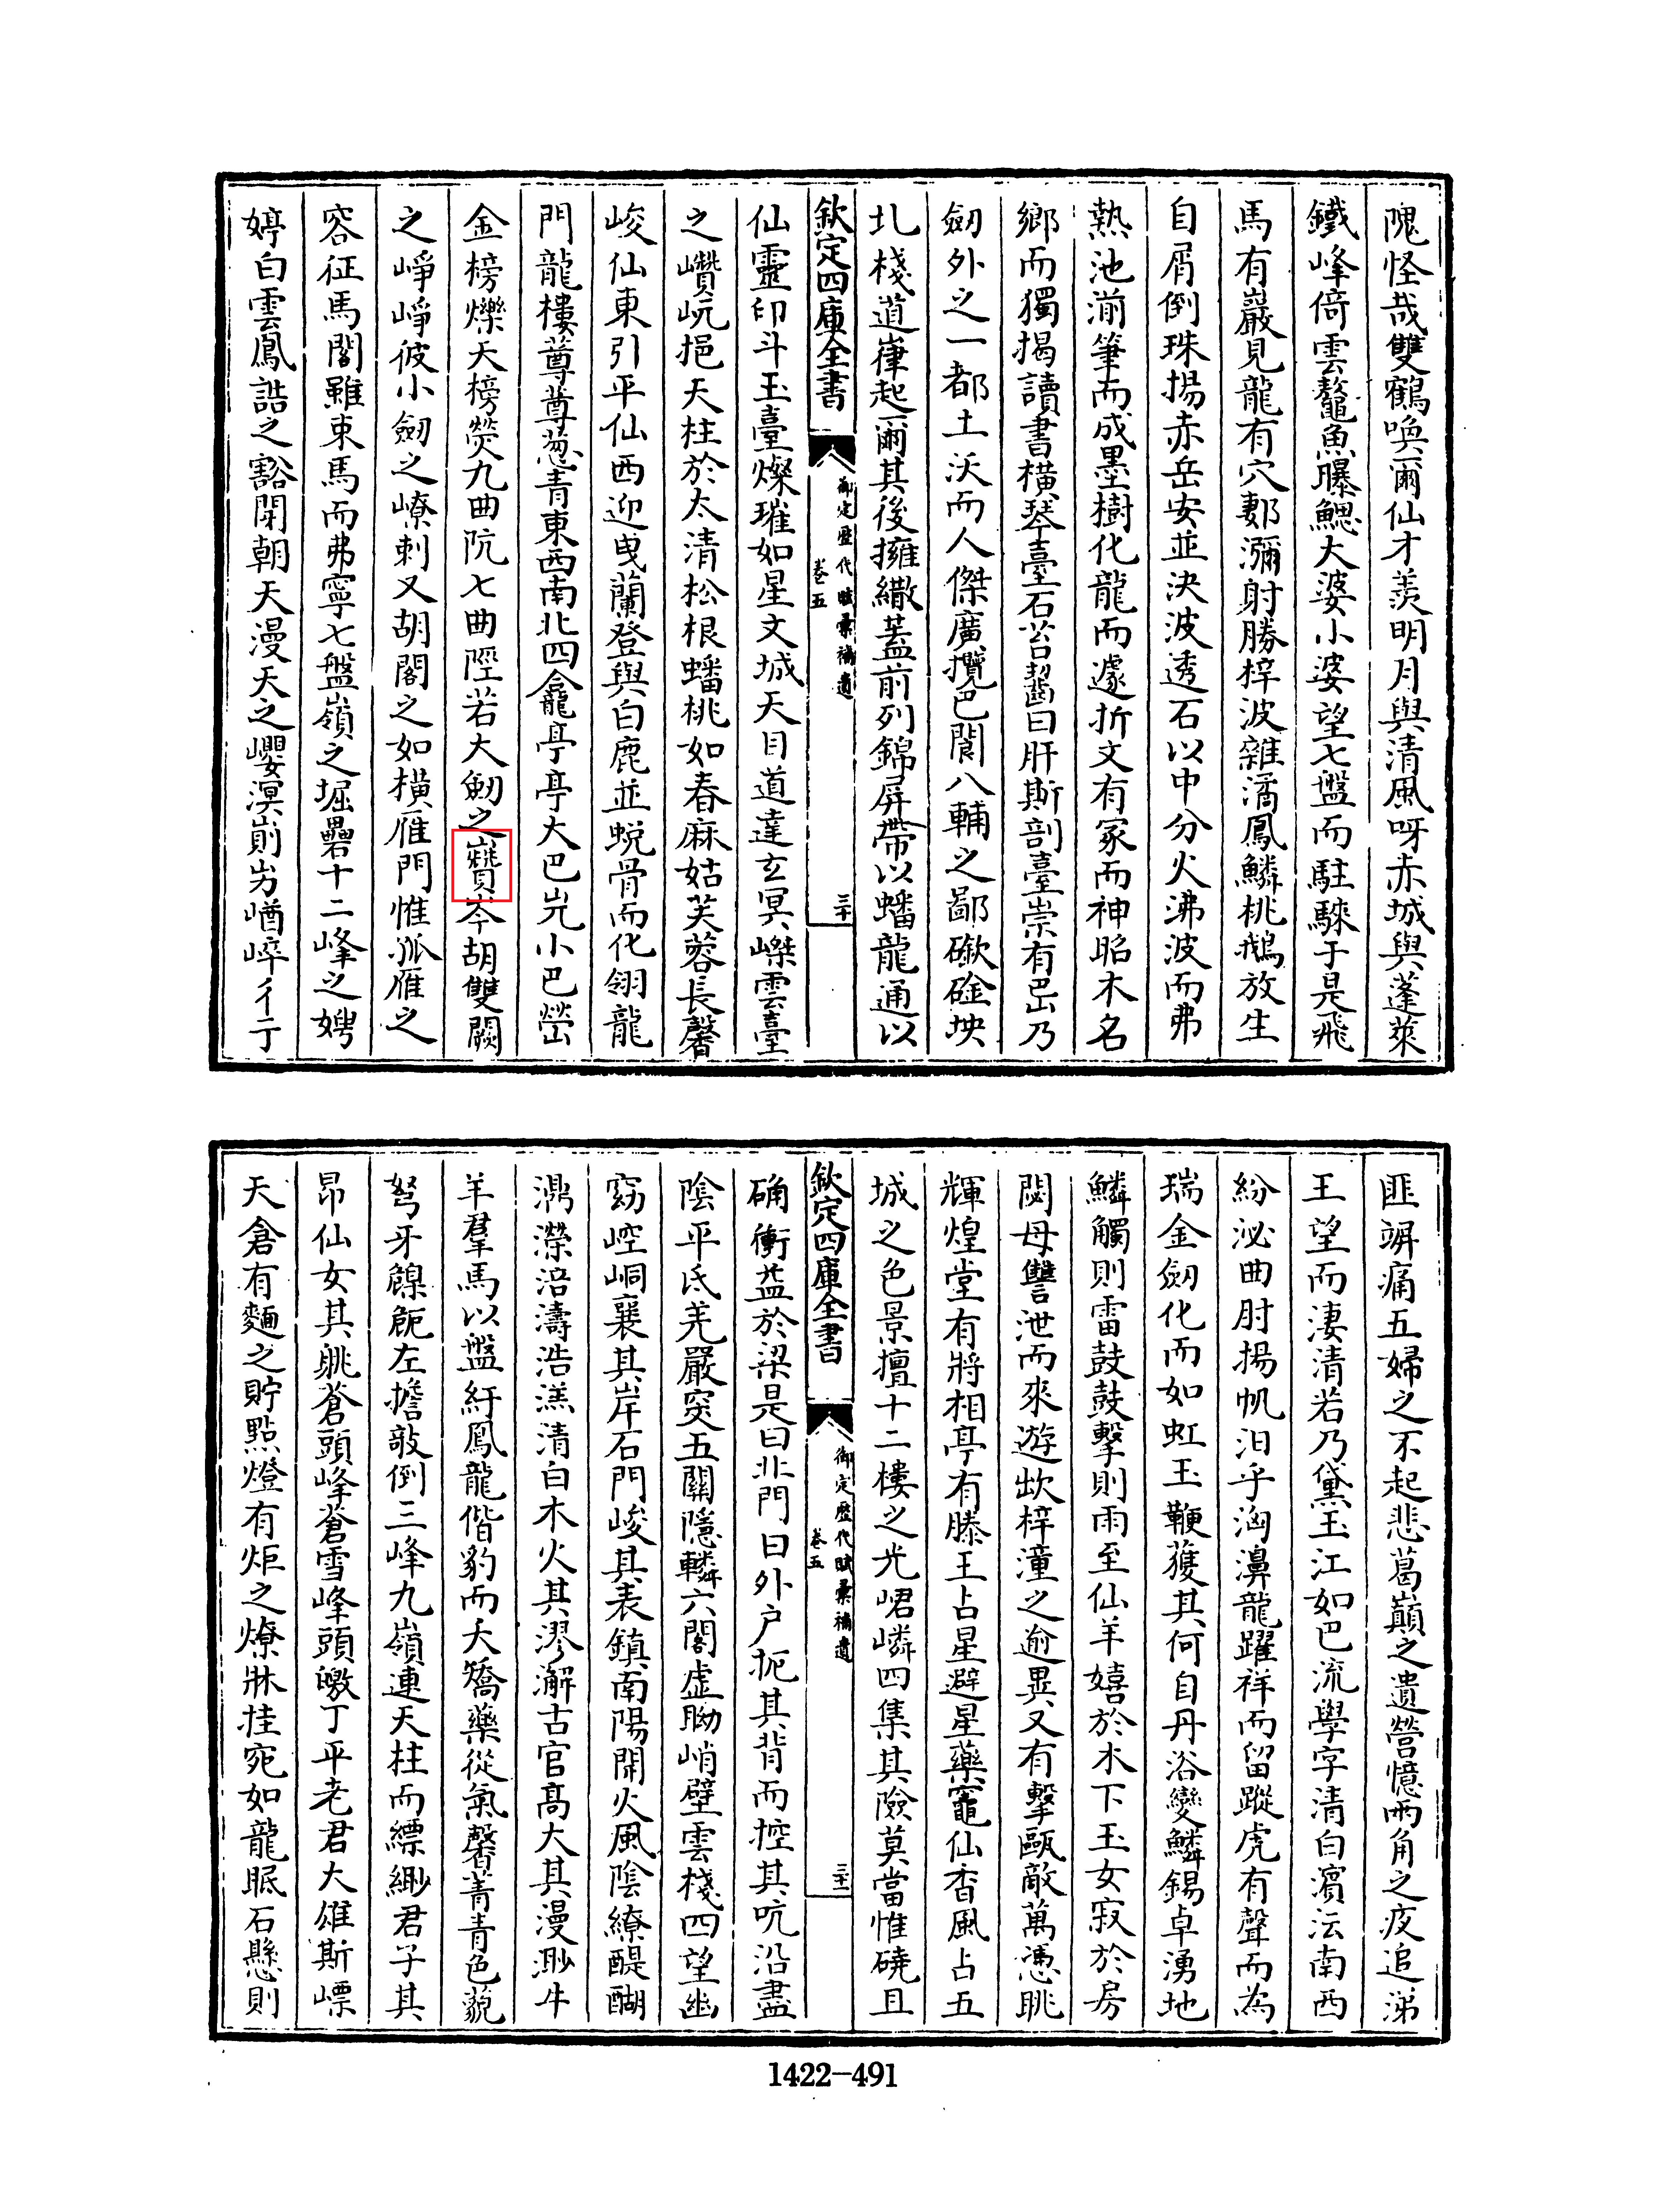 隗怪哉雙鶴喚爾仙才羨明月與清風呀赤城與蓬萊
鐵峰倚雲鼇魚曝鰓大婆小婆望七盤而駐騋于是飛
馬有巖見龍有穴鄴瀰射勝梓波雜潏鳳鱗桃鵝放生
自屑倒珠揚赤岳安並決波透石以中分火沸波而弗
熱池湔筆而成墨樹化龍而遽折文有冢而神昭木名
鄉而獨揭讀書橫琴臺石苔齧曰肝斯剖臺崇有岊乃
劒外之一都土沃而人傑廣攬巴閬八輔之鄙礉硂坱
圠棧道嵂起爾其後擁繖蓋前列錦屏帶以蟠龍通以
欽定四庫全書
御定歷代賦彙補遺
卷五
三十
仙靈印斗玉臺燦璀如星文城天目道達玄冥嵥雲臺
之巑岏挹天柱於太清松根蟠桃如春麻姑芙蓉長馨
峻仙東引平仙西迎曳蘭登與白鹿並蛻骨而化翎龍
門龍樓尊尊葱青東西南北四龕亭亭大巴岏小巴嵤
金榜爍天榜熒九曲阬七曲陘若大劒之巑岑胡雙闕
之崢崢彼小劒之嶛剌又胡閣之如橫雁門惟孤雁之
容征馬閣雖束馬而弗寧七盤嶺之堀礨十二峰之娉
婷白雲鳳誥之豁閉朝天漫天之巊溟崱屴崷崪彳亍
匪竮痛五婦之不起悲葛巔之遺營憶兩角之夜追涕
王望而淒清若乃黛玉江如巴流學字清白濱沄南西
紛泌曲肘揚帆汨乎洶濞龍躍祥而留蹤虎有聲而為
瑞金劒化而如虹玉鞭蒦其何自丹浴變鱗錫卓湧地
鱗觸則雷鼓鼓擊則雨至仙羊嬉於木下玉女寂於房
閟母讐泄而來遊坎梓潼之逾異又有擊甌敵萬憑眺
輝煌堂有將相亭有滕王占星避星藥竈仙杳風占五
城之色景擅十二樓之光峮嶙四集其險莫當惟磽且
欽定四庫全書
御定歷代賦彙補遺
卷五
三十一
确衝葢於梁是曰北門曰外户扼其背而控其吭沿盡
陰平氐羌嚴突五關隱轔六閣虚眑峭壁雲棧四望幽
窈崆峒襄其岸石門峻其表鎮南陽開火風陰繚醍醐
濎濴涪濤浩溔清白木火其漻澥古官高大其漫渺牛
羊羣馬以盤紆鳳龍偕豹而夭矯藥從氣馨菁青色藐
弩牙䫥卼左擔敲倒三峰九嶺連天柱而縹緲君子其
昂仙女其眺蒼頭峰蒼雪峰頭皦丁平老君大雄斯嫖
天倉有麵之貯點燈有炬之燎牀挂宛如龍眠石懸則
1422-491